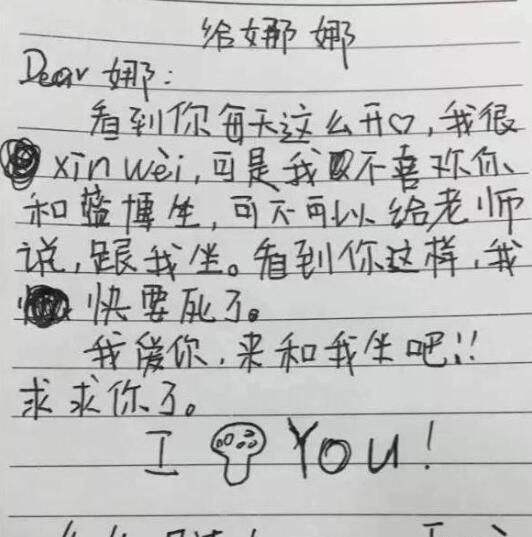 给娜娜
Dear 娜:
看到你每天这么开♡,我很
xīn wèi,可是我不喜欢你
和蓝博坐,可不可以给老师
说,跟我坐。看到你这样,我
快要死了。
我爱你,来和我坐吧!!
求求你了。
I You!